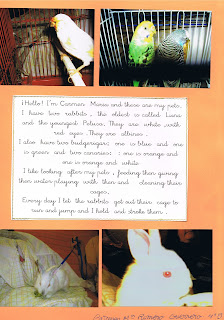 ¡Hello! I'm Carmen Maria and these are my pets.
I have two rabbits, the oldest is called Luna
and the youngest Peluca. They are white with
red eyes. They are albinos.
I also have two budgerigars: one is blue and one
is green and two canaries: : one is orange and
one is orange and white.
I like looking after my pets, feeding them giving
them water playing with them and cleaning their
cages.
Every day I let the rabbits get out their cage to
run and jump and I hold and stroke them.
Carmen Mª Romero